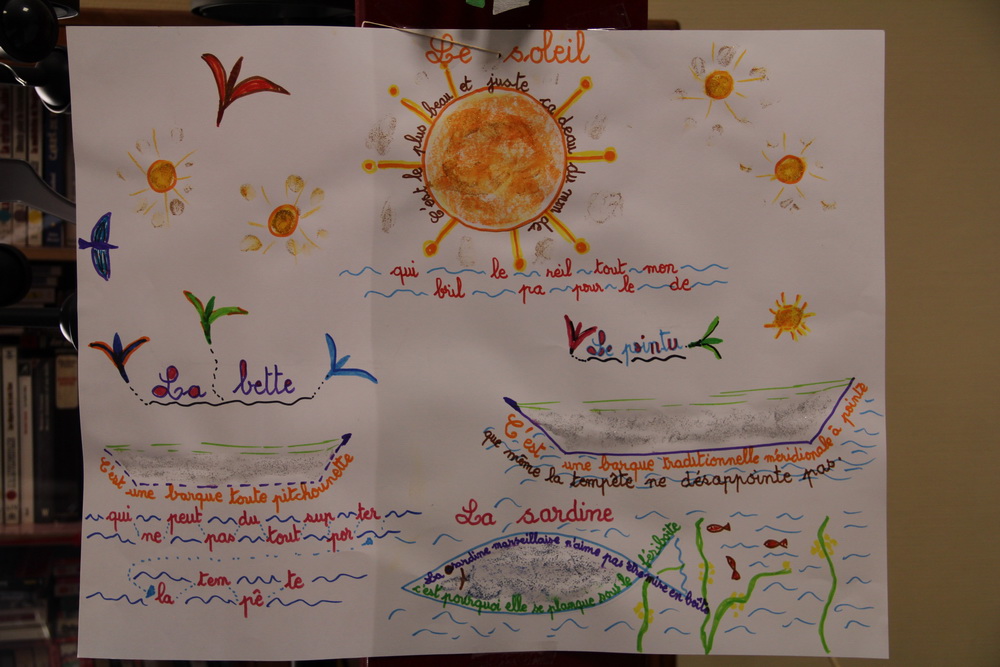 Le soleil
C'est le plus beau et juste ca deau du mon de
qui le réil tout mon
bril pa pour le de
La bette
C'est une barque toute pitchounette
qui peut du sup ter
ne pas tout por
tem te
la pê
Le pointu
C'est une barque traditionnelle méridionale à pointe
que même la tempête ne désappointe pas.
La sardine
La sardine marseillaise n'aime pas être mise en boîte
c'est pourquoi elle se planque sous le